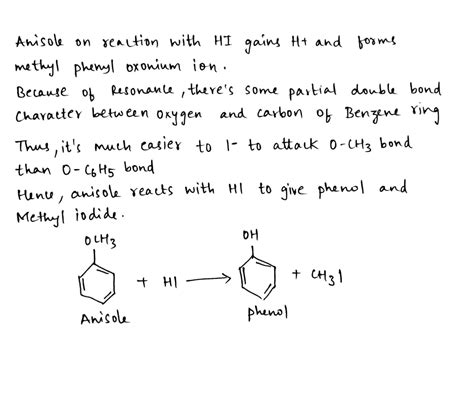 Anisole on reaction with HI gains H+ and forms
methyl phenyl oxonium ion.
Because of Resonance, there's some partial double bond
character between oxygen and carbon of Benzene ring
Thus, it's much easier to I- to attack O-CH3 bond
than O-C6H5 bond
Hence, anisole reacts with HI to give phenol and
Methyl iodide.
OCH3 OH
+ HI → + CH3I
Anisole phenol